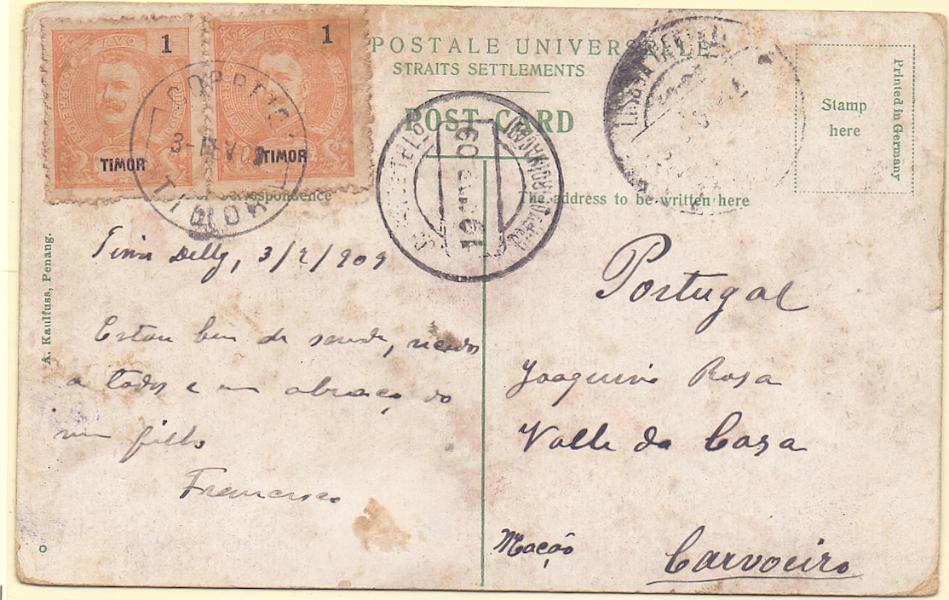 AVO 1
TIMOR
AVO 1
TIMOR
CORREIO
3-FEV 09
TIMOR
POSTALE UNIVERSELLE
STRAITS SETTLEMENTS
POST CARD
Correspondence
The address to be written here
Stamp
here
Printed in Germany
A. Kaulfuss, Penang.
09
19
Timor Delly, 3/2/909
Estou bem de saude,
a todos e um abraço do
filho
Francisco
Portugal
Joaquim Rosa
Valle da Casa
Mação
Carvoeiro